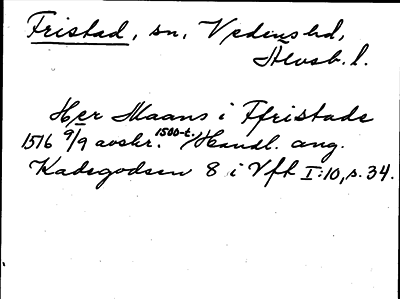 Fristad, sn, Vedens hd,
Älvsb. l.
Her Maans i Ffristade
1516 9/9 avskr. 1500-t. Handl. ang.
Kadsgodsen 8 i Vfh I:10, s. 34.